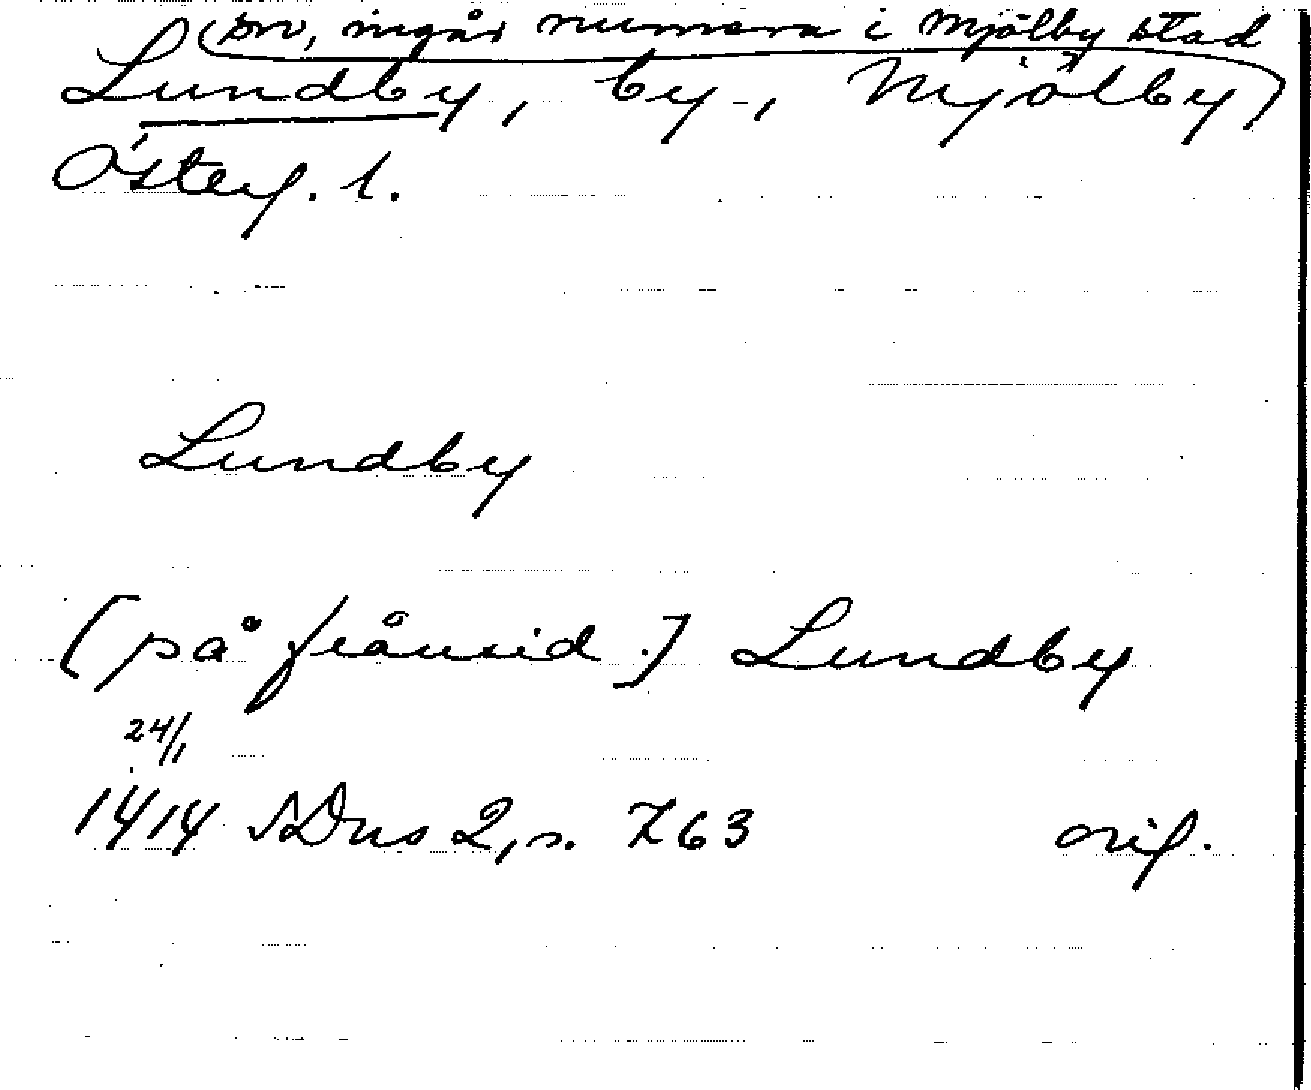 (sn, ingår numera i Mjölby stad
Lundby, by, Mjölby)
Österg. l.
Lundby
[på frånsid.] Lundby
24/1
1414 SDns 2, s. 763 orig.